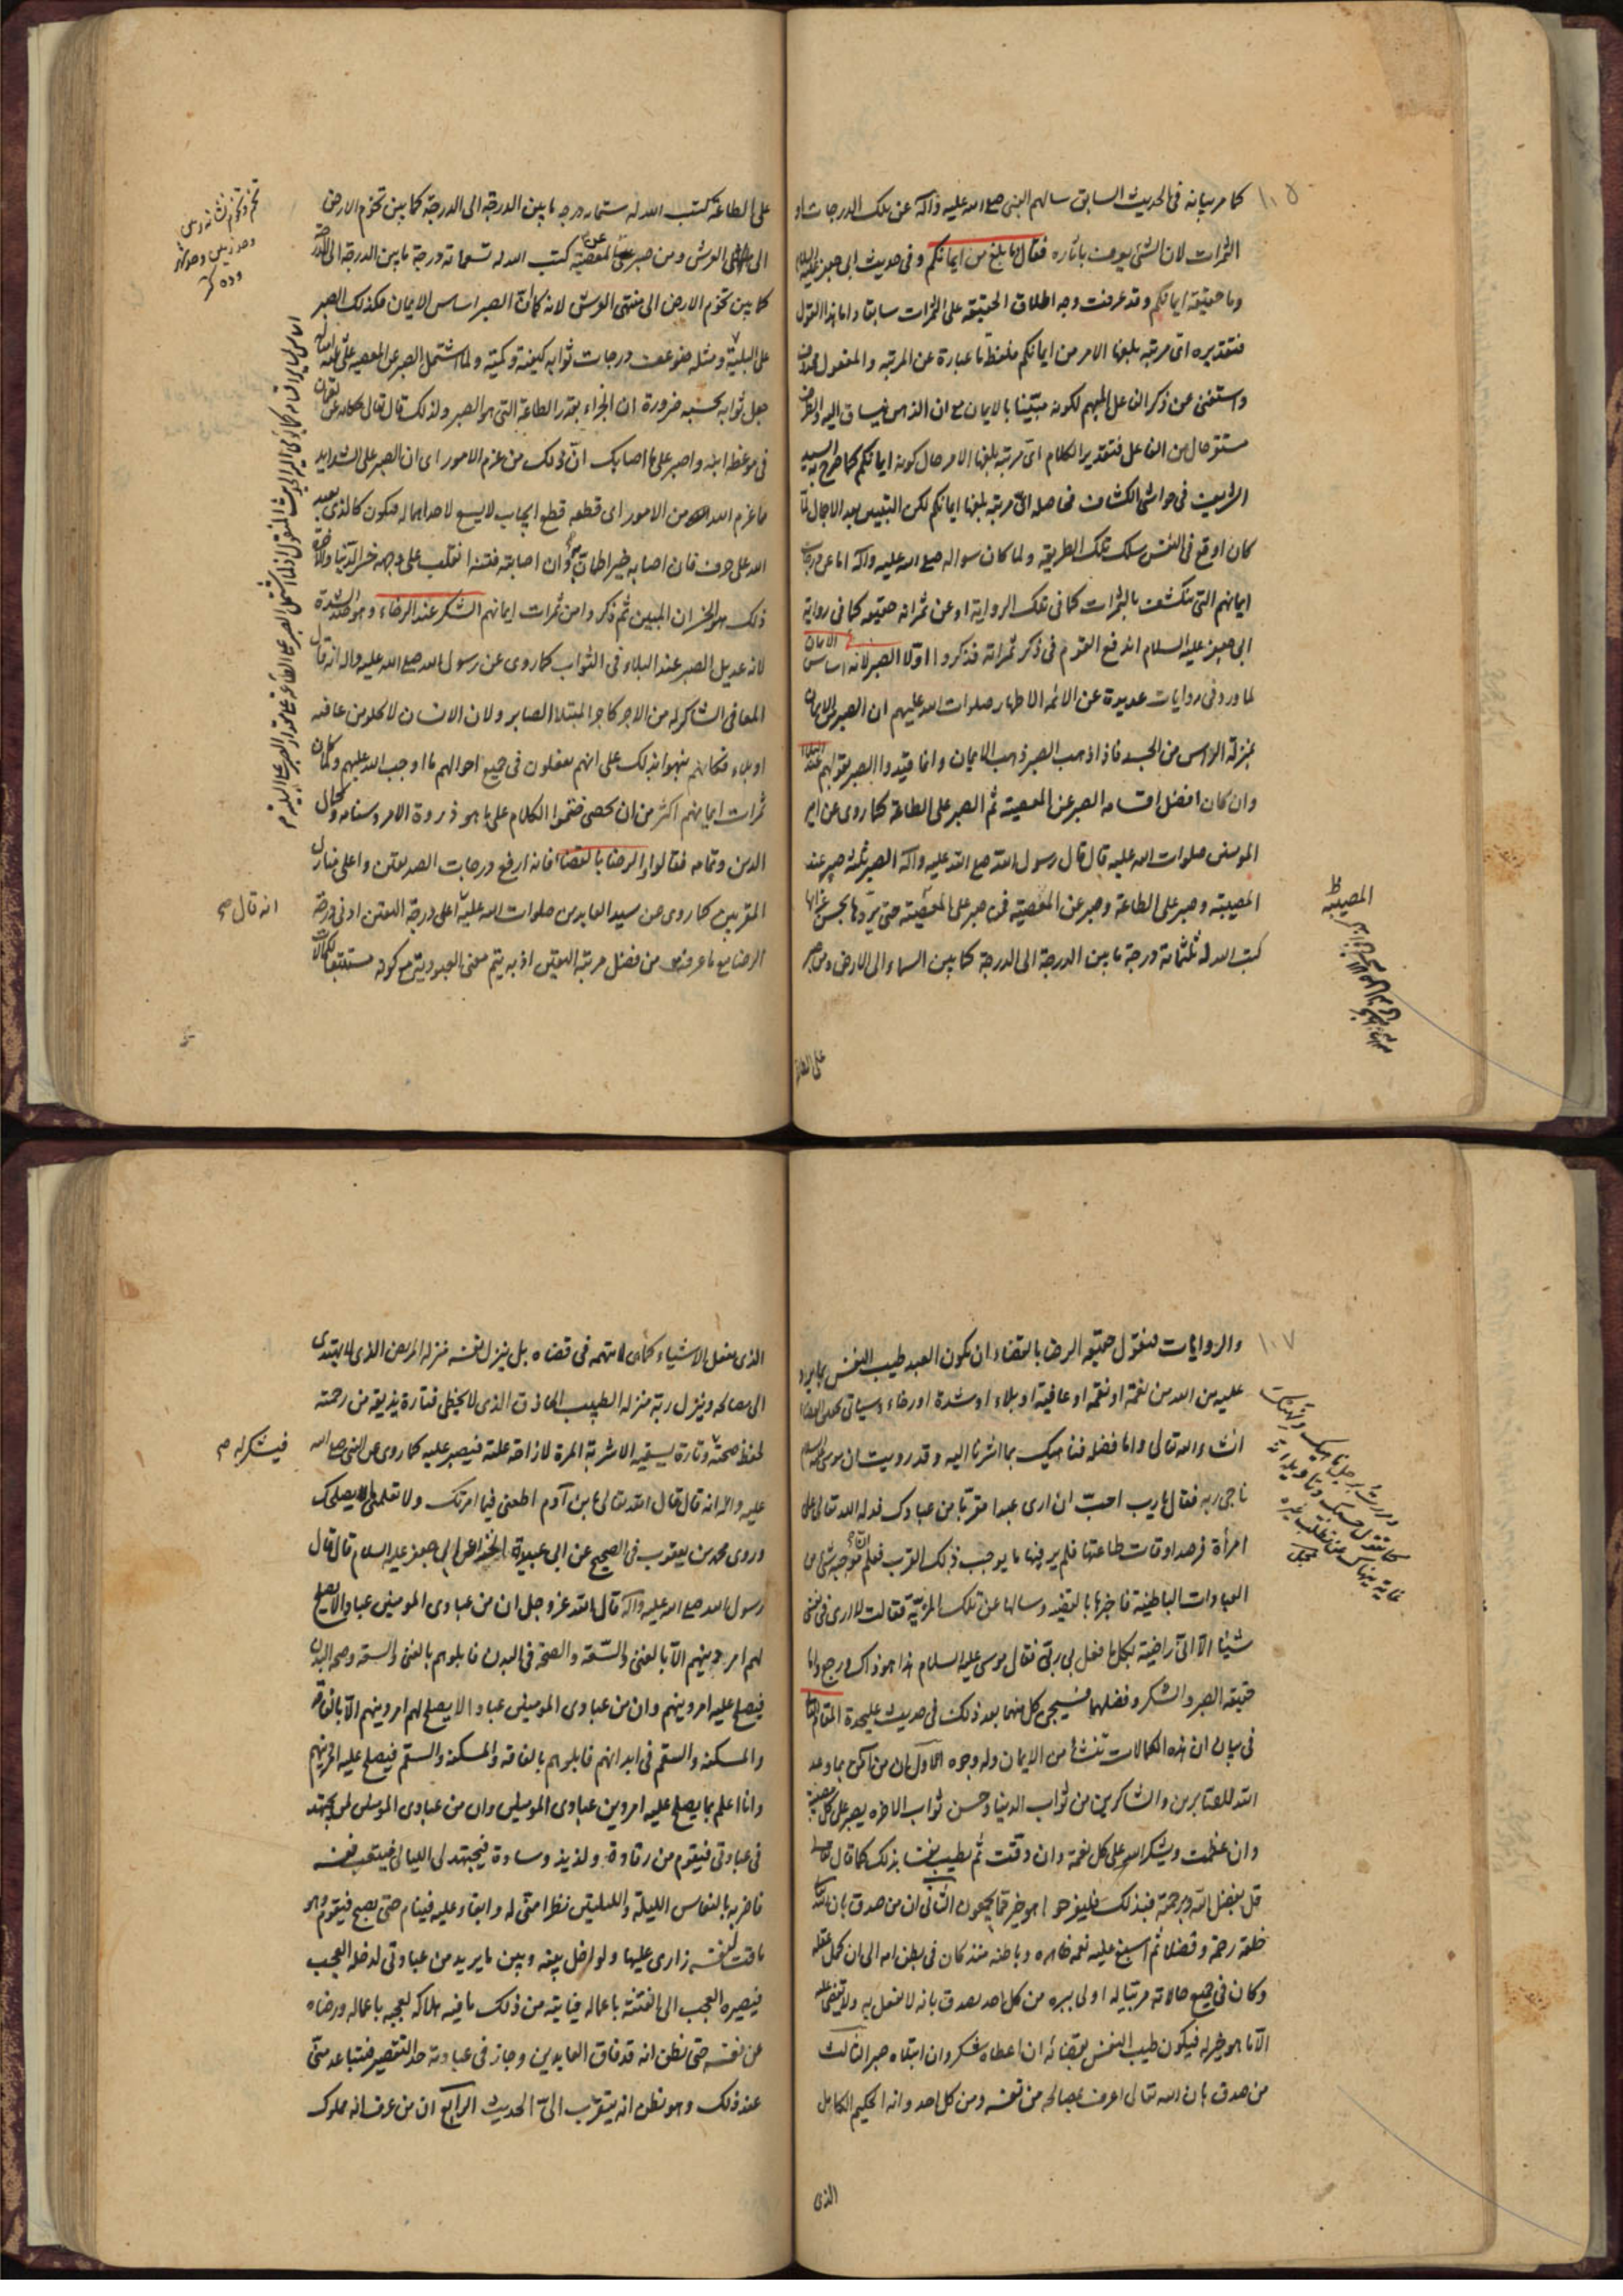 ١٠٥
كما مر بيانه فى الحديث السابق سالهم النبى صلى الله عليه واله عن تلك الدرجات او
الثمرات لان الشئ يعرف باثاره فقال ما بلغ من ايمانكم وفى حديث ابى جعفر عليه السلام
وما حقيقة ايمانكم وقد عرفت وجه اطلاق الحقيقة على الثمرات سابقا واما هذا القول
فتقديره اى مرتبة بلغها الامر من ايمانكم فلفظ ما عبارة عن المرتبة والمفعول محذوف
واستغنى عن ذكر الفاعل المبهم لكونه مبيّنا بالايمان مع ان الذهن ينساق اليه والظرف
مستقر حال من الفاعل فتقدير الكلام اى مرتبة بلغها الامر حال كونه ايمانكم كما صرح به السيد
الشريف فى حواشى الكشاف فحاصله اىّ مرتبة بلغها ايمانكم لكن التبيين بعد الاجمال لمّا
كان اوقع فى النفس سلك تلك الطريقة ولما كان سواله صلى الله عليه واله اما عن درجات
ايمانهم التى تنكشف بالثمرات كما فى تلك الرواية او عن ثمراته حقيقة كما فى رواية
ابى جعفر عليه السلام اندفع القوم فى ذكر ثمراته فذكروا اولا الصبر لانه اساس الايمان
لما ورد فى روايات عديدة عن الائمه الاطهار صلوات الله عليهم ان الصبر من الايمان
بمنزلة الراس من الجسد فاذا ذهب الصبر ذهب الايمان وانما قيدوا الصبر بقولهم عند البلاء
وان كان افضل اقسامه الصبر عن المعصية ثم الصبر على الطاعة كما روى عن امير
المومنين صلوات الله عليه قال قال رسول الله صلى الله عليه واله الصبر ثلثة صبر عند
المصيبة وصبر على الطاعة وصبر عن المعصية فمن صبر على المعصية حتى يردّها بحسن عزائها
كتب الله له ثلثمائة درجة ما بين الدرجة الى الدرجة كما بين السماء الى الارض ومن صبر
على الطا
المصيبة ظ
على الطاعة كتب الله له ستمائة درجه ما بين الدرجة الى الدرجة كما بين تخوم الارض
الى العرش ومن صبر عن المعصية كتب الله له تسعمائة درجة ما بين الدرجة الى الدرجة
كما بين تخوم الارض الى منتهى العرش لانه كما ان الصبر اساس الايمان فكذلك الصبر
على البلية ومثله ضوعف درجات ثوابه كيفية وكمية ولما اشتمل الصبر عن المعصيه على
جعل ثوابه بحسبه ضرورة ان الجزاء بقدر الطاعة التى هو الصبر ولذلك قال تعالى حكاية عن لقمان
فى موعظة ابنه واصبر على ما اصابك انّ ذلك من عزم الامور اى ان الصبر على الشدايد
مما عزم الله من الامور اى قطعه قطع ايجاب لا يسع لاحد اهماله فيكون كالذى يعبد
الله على حرف فان اصابه خير اطمأن به وان اصابته فتنة انقلب على وجهه خسر الدنيا والاخرة
ذلك هو الخسران المبين ثم ذكروا من ثمرات ايمانهم الشكر عند الرخاء وهو ضد الشدة
لانه عديل الصبر عند البلاء فى الثواب كما روى عن رسول الله صلى الله عليه واله انه قال
المعافى الشاكر له من الاجر كاجر المبتلى الصابر ولان الانسان لا يخلو من عافية
او بلاء فكانهم نبهوا بذلك على انهم يعملون فى جميع احوالهم ما اوجب الله عليهم ولما كان
ثمرات ايمانهم اكثر من ان يحصى ختموا الكلام على ما هو ذروة الامر وسنامه وكمال
الدين وتمامه فقالوا والرضا بالقضاء فانه ارفع درجات الصديقين واعلى منازل
المقربين كما روى عن سيد العابدين صلوات الله عليه اعلى درجة اليقين ادنى درجة
الرضا مع ما عرفته من فضل مرتبة اليقين اذ به يتم معنى العبودية مع كونه مستتبعا لكمالات
انه قال صح
١٠٧
والروايات فنقول حقيقة الرضا بالقضاء ان يكون العبد طيب النفس بما يرد
عليه من الله من نعمة او نقمة او عافية او بلاء او شدة او رخاء وسياتى تحقيق القضاء
انشاء الله تعالى واما فضله فناهيك بما اشرنا اليه وقد رويت ان موسى عليه السلام
ناجى ربه فقال يا رب احبّ ان ارى عبدا مقربا من عبادك فدله الله تعالى على
امرأة فرصد اوقات طاعتها فلم ير فيها ما يوجب ذلك القرب فعلم ان موجبه شئ من
العبادات الباطنية فاخبرها بالقصة وسالها عن تلك المزيّة فقالت لا ارى فى نفسى
شيئا الا انى راضية بكل ما فعل بى ربى فقال موسى عليه السلام هذا هو ذاك ورجع واما
حقيقة الصبر والشكر وفضلهما فسيجئ كل منهما بعد ذلك فى حديث عليحدة المقام الثانى
فى بيان ان هذه الكمالات تنشأ من الايمان وله وجوه الاوّل ان من تأمن بما وعد
الله للصابرين والشاكرين من ثواب الدنيا وحسن ثواب الاخره يصبر على كل مصيبة
وان عظمت ويشكر الله على كل نعمة وان دقت ثم يطيب نفسه بذلك كما قال تعالى
قل بفضل الله وبرحمته فبذلك فليفرحوا هو خير مما يجمعون الثانى ان من صدق بان الله تعالى
خلقه رحمة وفضلا ثم اسبغ عليه نعمه ظاهره وباطنه منذ كان فى بطن امه الى ان كمل عقله
وكان فى جميع حالاته مربيا له اولى ببره من كل احد يصدق بانه لا يفعل به ولا يقضى عليه
الا ما هو خير له فيكون طيب النفس بقضائه ان اعطاه شكر وان ابتلاه صبر الثالث
من صدق بان الله تعالى اعرف بمصالحه من نفسه ومن كل احد وانه الحكيم الكامل
الذى
الذى يفعل الاشياء كما هى لا يتهمه فى قضاءه بل ينزل نفسه منزلة المريض الذى لا يهتدى
الى مصالحه وينزل ربه منزلة الطبيب الحاذق الذى لا يخطى فتارة يذيقه من رحمته
لحفظ صحته وتارة يسقيه الاشربة المرة لازاحة علته فيصبر عليه كما روى عن النبى صلى الله
فيشكر له صح
عليه واله انه قال قال الله تعالى يا بن آدم اطعنى فيما امرتك ولا تعلمنى ما يصلحك
وروى محمد بن يعقوب فى الصحيح عن ابى عبيدة الحذاء عن ابى جعفر عليه السلام قال قال
رسول الله صلى الله عليه واله قال الله عز وجل ان من عبادى المومنين عبادا لا يصلح
لهم امر دينهم الا بالغنى والسّعة والصحة فى البدن فابلوهم بالغنى والسعة وصحة البدن
فيصلح عليه امر دينهم وان من عبادى المومنين عبادا لا يصلح لهم امر دينهم الا بالفاقة
والمسكنة والسقم فى ابدانهم فابلوهم بالفاقة والمسكنة والسقم فيصلح عليه امر دينهم
وانا اعلم بما يصلح عليه امر دين عبادى المومنين وان من عبادى المومنين لمن يجتهد
فى عبادتى فيقوم من رقاده ولذيذ وسادة فيجتهد لى الليالى فيتعب نفسه
فاضربه بالنعاس الليلة والليلتين نظرا منّى له وابقاء عليه فينام حتى يصبح فيقوم وهو
ماقت لنفسه زارى عليها ولو اخل بينه وبين ما يريد من عبادتى لدخله العجب
فيصيره العجب الى الفتنة باعماله فياتيه من ذلك ما فيه هلاكه لعجبه باعماله ورضاه
عن نفسه حتى يظن انه قد فاق العابدين وجاز فى عبادته حد التقصير فيتباعد منّى
عند ذلك وهو يظن انه يتقرب الىّ الحديث الرابع ان من عرف انه مملوك